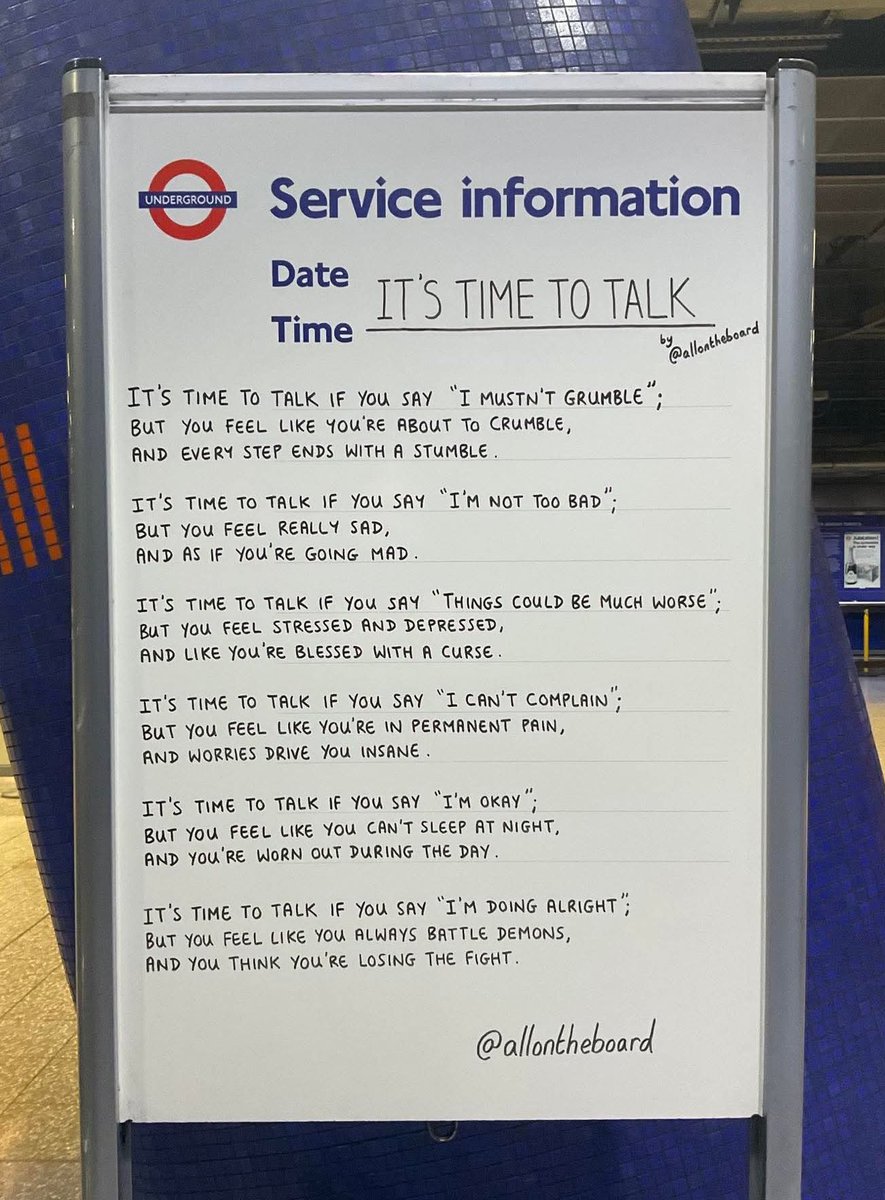 UNDERGROUND
Service information
Date
Time
IT'S TIME TO TALK
by
@allontheboard
IT'S TIME TO TALK IF YOU SAY "I MUSTN'T GRUMBLE";
BUT YOU FEEL LIKE YOU'RE ABOUT TO CRUMBLE,
AND EVERY STEP ENDS WITH A STUMBLE.
IT'S TIME TO TALK IF YOU SAY "I'M NOT TOO BAD";
BUT YOU FEEL REALLY SAD,
AND AS IF YOU'RE GOING MAD.
IT'S TIME TO TALK IF YOU SAY "THINGS COULD BE MUCH WORSE";
BUT YOU FEEL STRESSED AND DEPRESSED,
AND LIKE YOU'RE BLESSED WITH A CURSE.
IT'S TIME TO TALK IF YOU SAY "I CAN'T COMPLAIN";
BUT YOU FEEL LIKE YOU'RE IN PERMANENT PAIN,
AND WORRIES DRIVE YOU INSANE.
IT'S TIME TO TALK IF YOU SAY "I'M OKAY";
BUT YOU FEEL LIKE YOU CAN'T SLEEP AT NIGHT,
AND YOU'RE WORN OUT DURING THE DAY.
IT'S TIME TO TALK IF YOU SAY "I'M DOING ALRIGHT";
BUT YOU FEEL LIKE YOU ALWAYS BATTLE DEMONS,
AND YOU THINK YOU'RE LOSING THE FIGHT.
@allontheboard